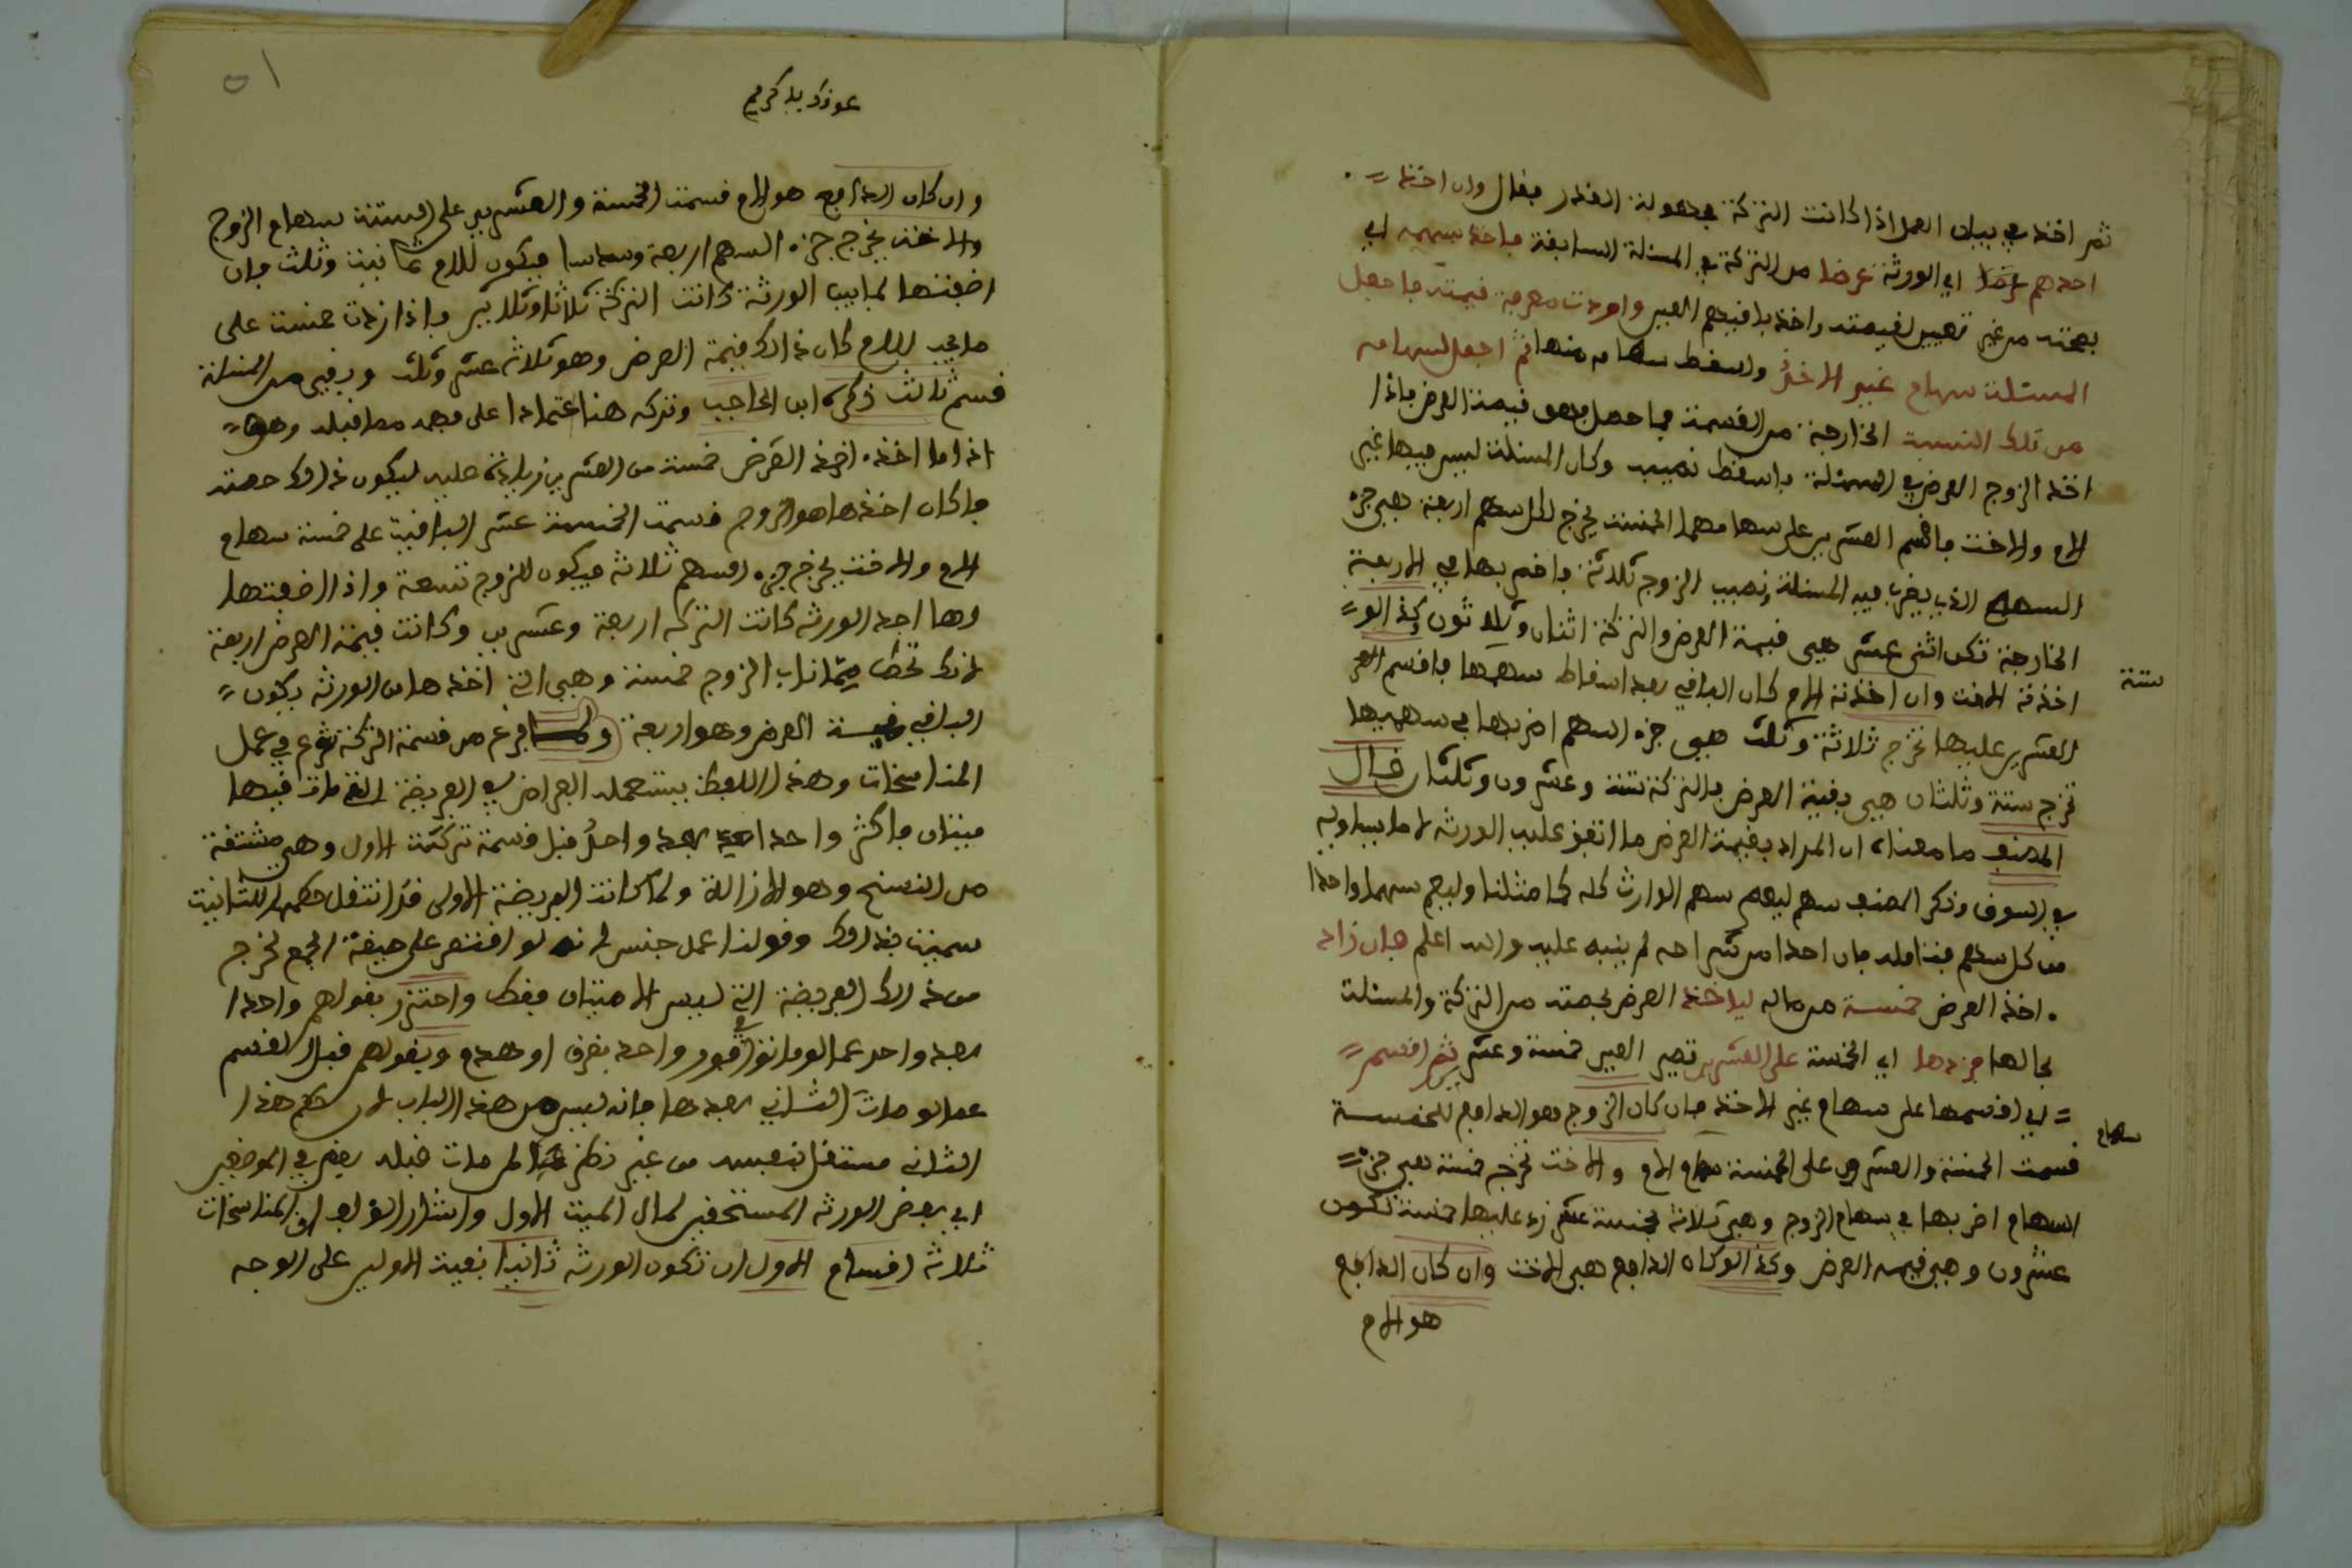 ثم اخذ في بيان العمل اذا كانت التركة مجهولة القدر فقال وان اخذ
احدهم عرضا اي الورثة عرضا من التركة في المسئلة السابقة فاخذ بسهمه اي
بحصته من غير تعيين لقيمته واخذ باقيهم العين واردت معرفة قيمته فاجعل
المسئلة سهام غير الاخذ واسقط سهامه منها ثم اجعل لسهامه
من تلك النسبة الخارجة من القسمة فما حصل فهو قيمة العرض فاذا
اخذ الزوج العرض في المسئلة فاسقط نصيبه وكان المسئلة ليس فيها غير
الام والاخت فاقسم العشرين على سهامهما الخمسة يخرج لكل سهم اربعة فهي جزء
السهم الذي يضرب فيه المسئلة ونصيب الزوج ثلاثة فاضربها في الاربعة
الخارجة تكن اثنى عشر هي قيمة العرض والتركة اثنان وثلاثون وكذا لو
اخذته الاخت وان اخذته الام كان الباقي بعد اسقاط سهمها فاقسم
ستة
العشرين عليها تخرج ثلاثة وثلث فهي جزء السهم اضربها في سهميها
تخرج ستة وثلثان هي بقيمة العرض فالتركة ستة وعشرون وثلثان قال
المصنف ما معناه ان المراد بقيمة العرض ما اتفق عليه الورثة لا ما يساويه
في السوق وذكر المصنف سهم ليعم سهم الوارث كله كما مثلنا وليعم سهما واحدا
من كل سهم فتامله فان احدا من شراحه لم ينبه عليه والله اعلم فان زاد
اخذ العرض خمسة من ماله لياخذ العرض بحصته من التركة والمسئلة
بحالها فزدها اي الخمسة على العشرين تصير العين خمسة وعشرين ثم اقسم
اي اقسمها على سهام غير الاخذ فان كان الزوج هو الدافع للخمسة
سهام
قسمت الخمسة والعشرين على الخمسة سهام الام والاخت تخرج خمسة فهي جزء
السهام اضربها في سهام الزوج وهي ثلاثة بخمسة عشر زد عليها خمسة تكون
عشرون وهي قيمة العرض وكذا لو كان الدافع هي الاخت وان كان الدافع
هو الام
٥١
عونك يا كريم
وان كان الدافع هو الام قسمت الخمسة والعشرين على الستة سهام الزوج
والاخت يخرج جزء السهم اربعة وسدسا فيكون للام ثمانية وثلث فان
اضفتها لما بيد الورثة كانت التركة ثلاثا وثلاثين فاذا زدت خمسة على
ما يجب للام كان ذلك قيمة العرض وهو ثلاثة عشر وثلث وبقي من المسئلة
قسم ثالث ذكره ابن الحاجب وتركه هنا اعتمادا على فهمه مما قبله وهو
اذا ما اخذ اخذ العرض خمسة من العشرين زيادة عليه ليكون ذلك حصته
فان كان اخذها هو الزوج قسمت الخمسة عشر الباقية على خمسة سهام
الام والاخت يخرج جزء السهم ثلاثة فيكون للزوج تسعة واذا اضفتها
لما اخذ الورثة كانت التركة اربعة وعشرين وكانت قيمة العرض اربعة
لانك تحط مما ناب الزوج خمسة وهي التي اخذها من الورثة يكون
الباقي قيمة العرض وهو اربعة ولما فرغ من قسمة التركة شرع في عمل
المناسخات وهذا اللفظ يستعمله الفراض في الفريضة التي مات فيها
ميتان فاكثر واحدا بعد واحد قبل قسمة تركة الاول وهي مشتقة
من النسخ وهو الازالة ولما كانت الفريضة الاولى قد انتقل حكمها للثانية
سميت بذلك وقولنا عمل جنس لانه لو اقتصر على صيغة الجمع لخرج
من ذلك الفريضة التي ليس الا ميتان فقط واحترز بقولهم واحدا
بعد واحد عما لو ماتوا في فور واحد بغرق او هدم وبقولهم قبل القسم
عما لو مات الثاني بعدها فانه ليس من هذا الباب لان حكم هذا
الثاني مستقل بنفسه من غير نظر لمن مات قبله يعني في الموضعين
اي بعض الورثة المستحقين لمال الميت الاول واشار المؤلف الى ان المناسخات
ثلاثة اقسام الاول ان تكون الورثة ثانيا بقية الاولين على الوجه